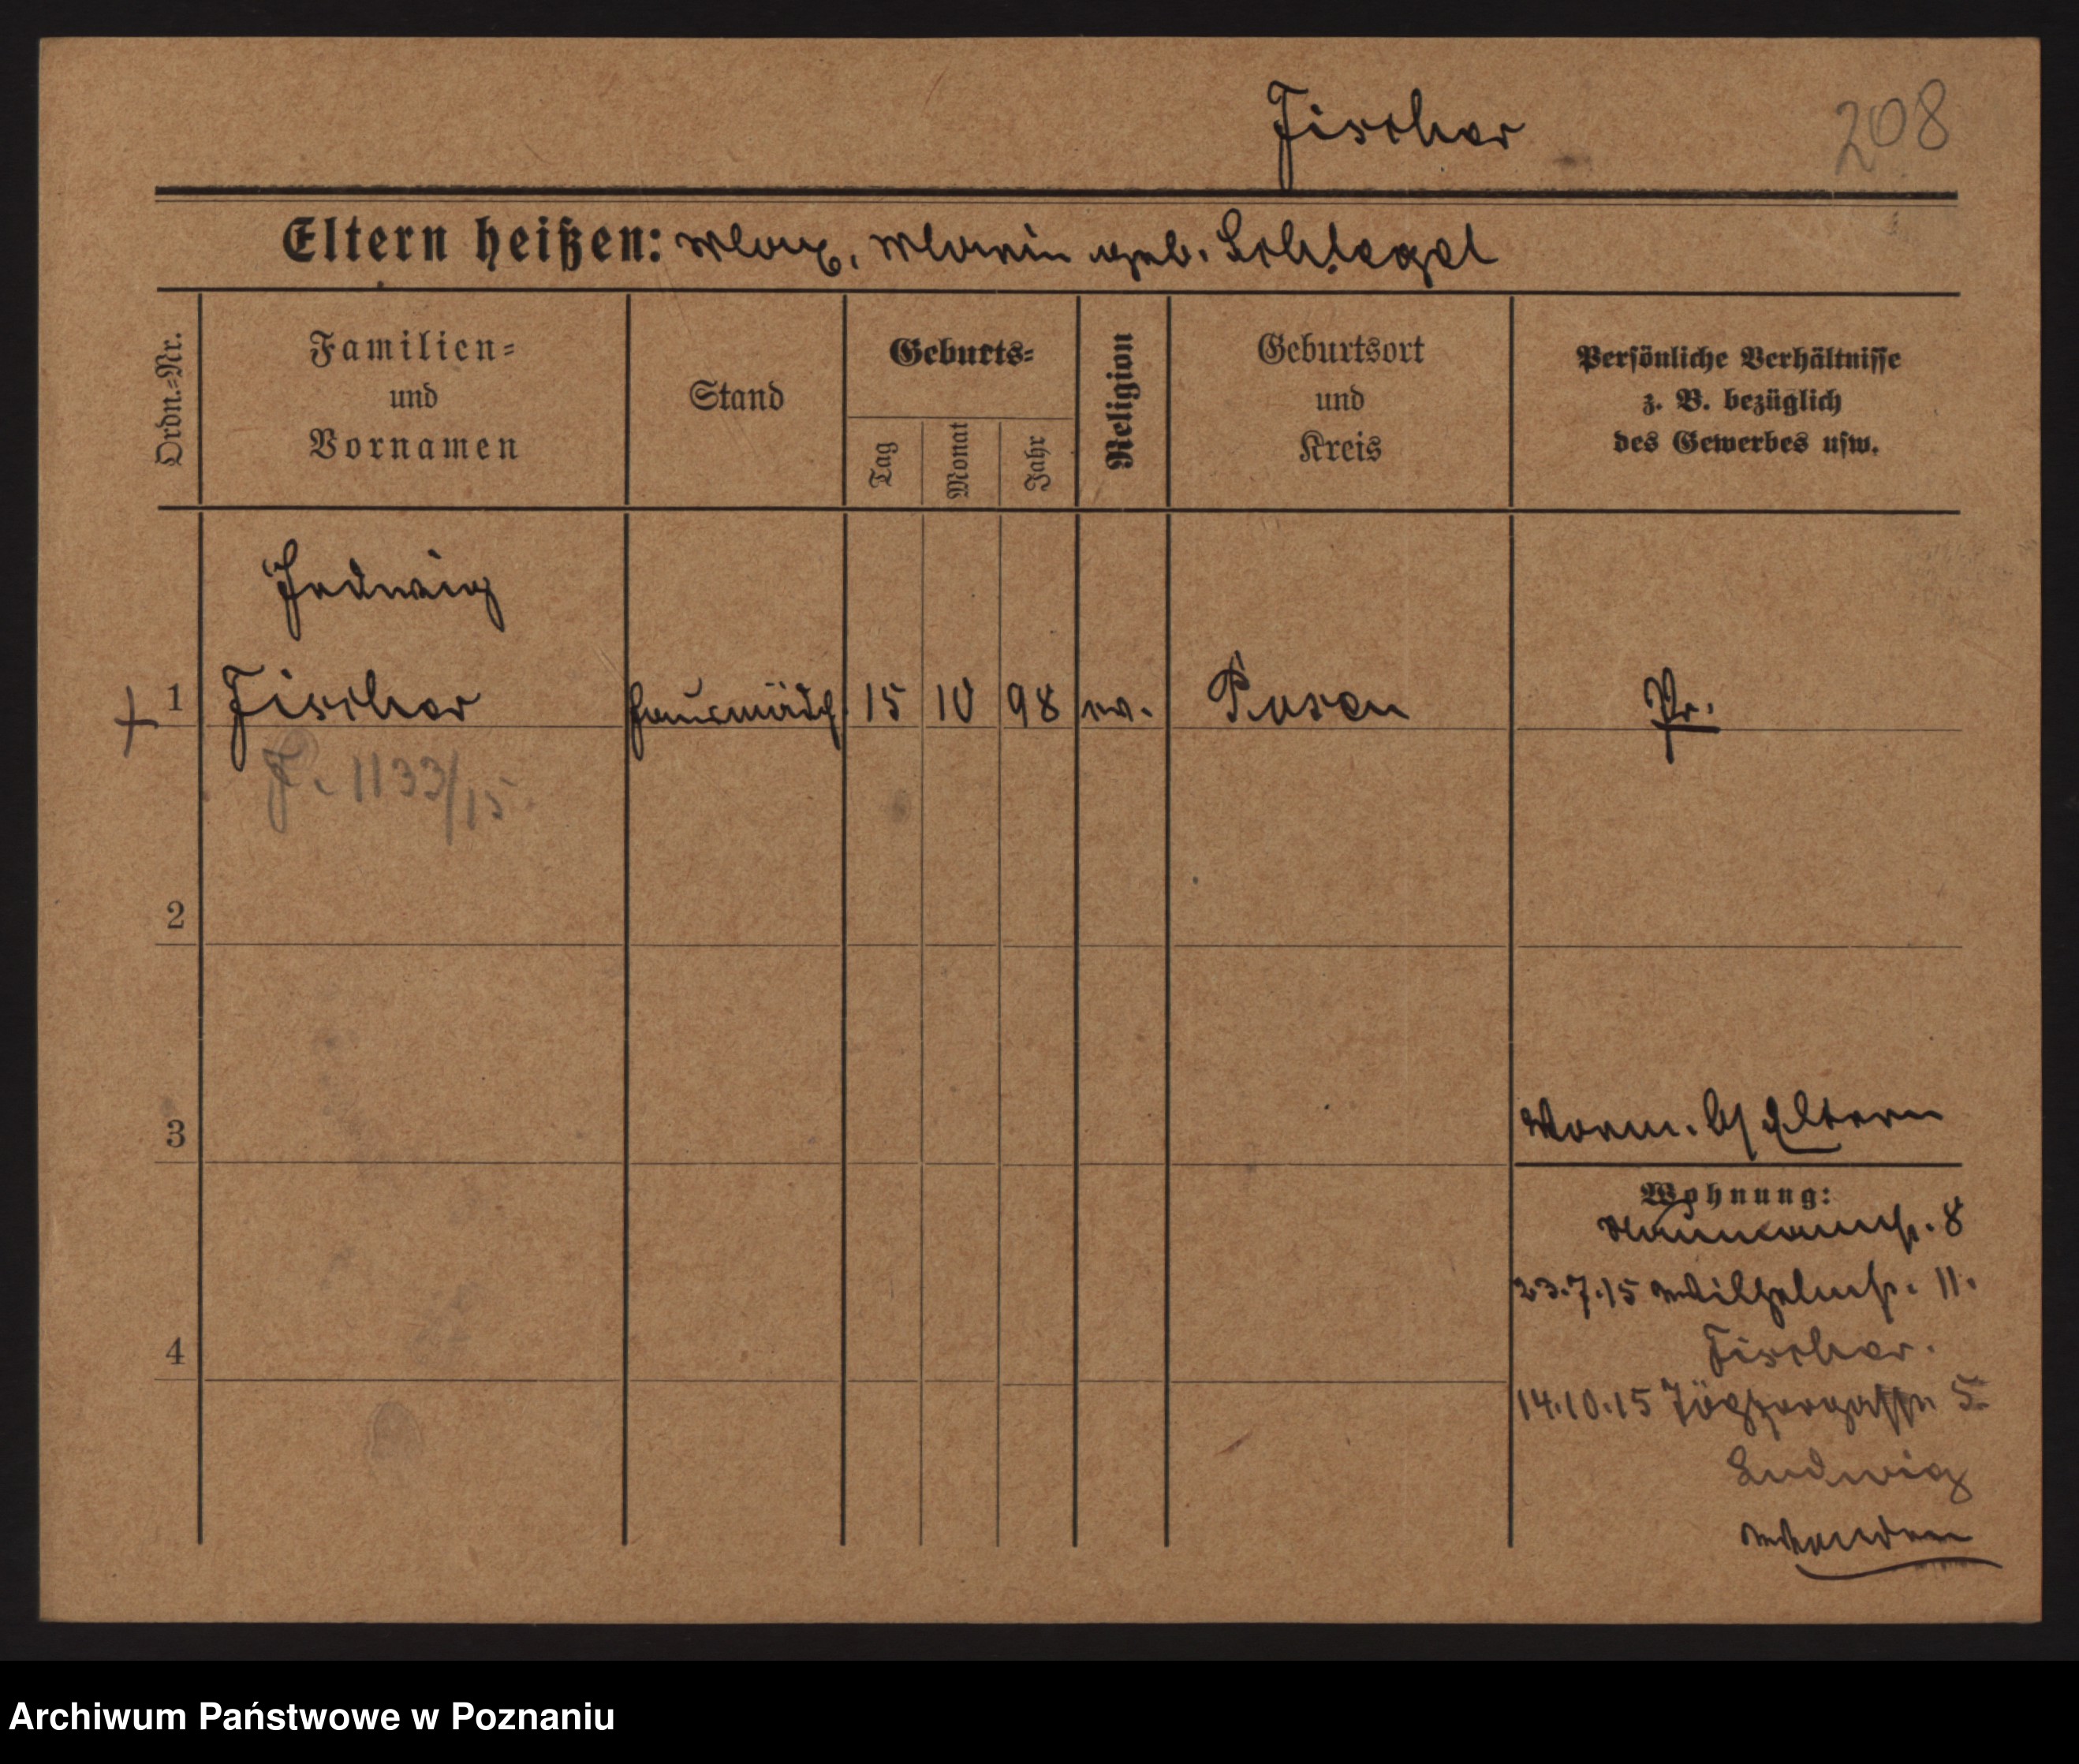 Fischer
208
Eltern heißen: Max, Marie geb. Schlegel
Ordn.-Nr.
Familien-
und
Vornamen
Stand
Geburts-
Tag
Monat
Jahr
Religion
Geburtsort
und
Kreis
Persönliche Verhältnisse
z. B. bezüglich
des Gewerbes usw.
Hedwig
1 Fischer Hausmädch. 15 10 98 ev. Posen Pr.
F. 1133/15.
2
3
Vorm. b/ Eltern
Wohnung:
Naumannstr. 8
23.7.15 Wilhelmstr. 11.
Fischer.
4
14.10.15 5
Ludwig